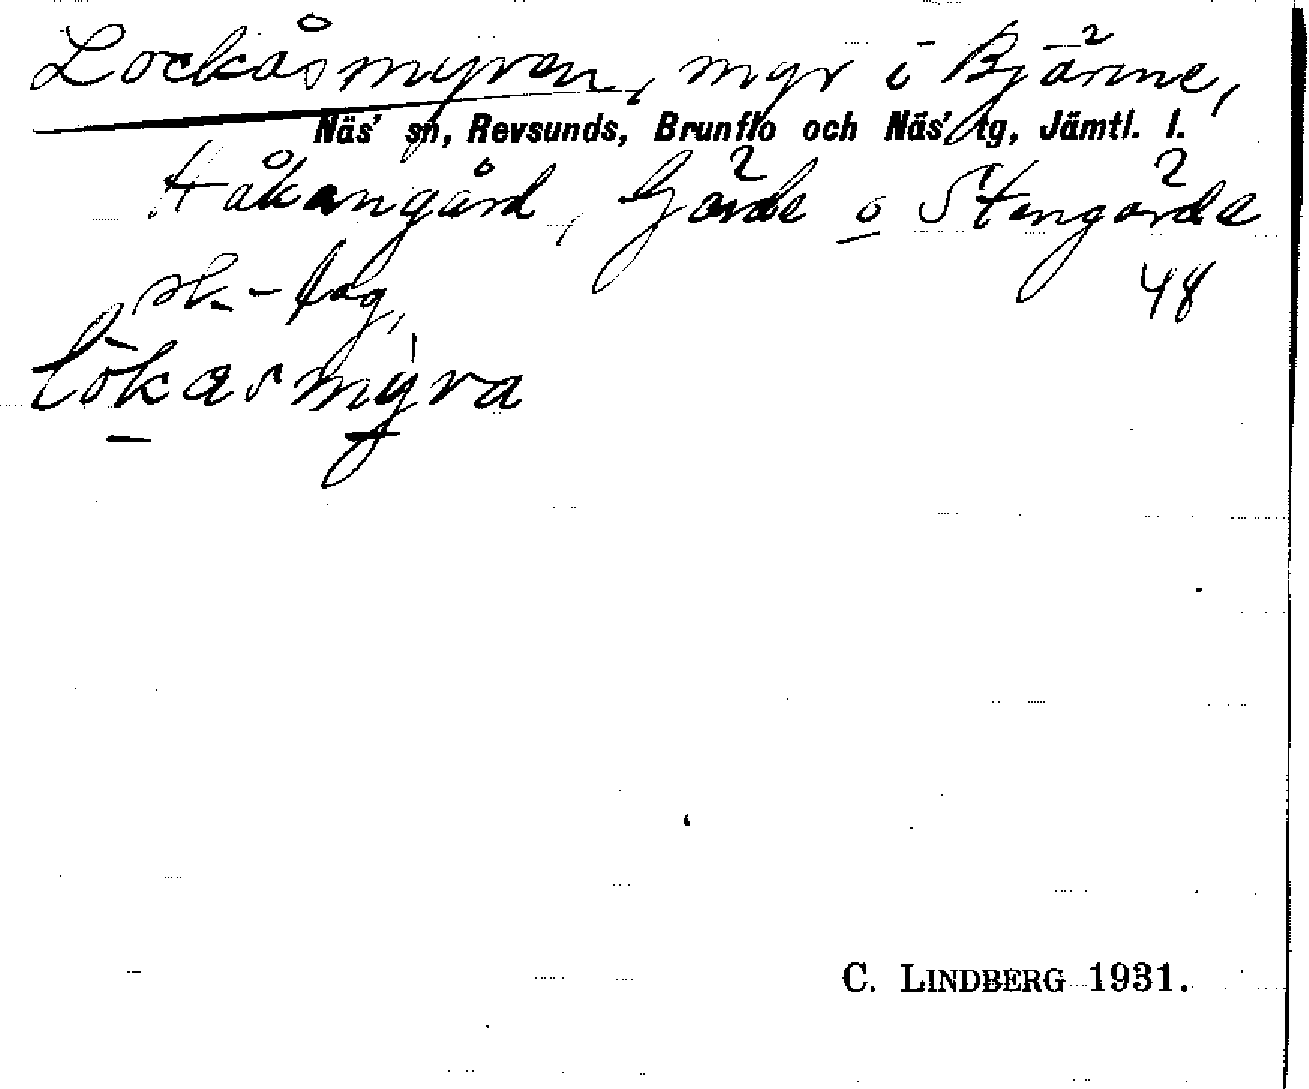 Lockåsmyren, myr i Bjärme,
Näs' sn, Revsunds, Brunflo och Näs' tg, Jämtl. l.
Håkangård, Gärde o Stengärde
sk-lag,
48
lòkasmỳra
C. LINDBERG 1931.